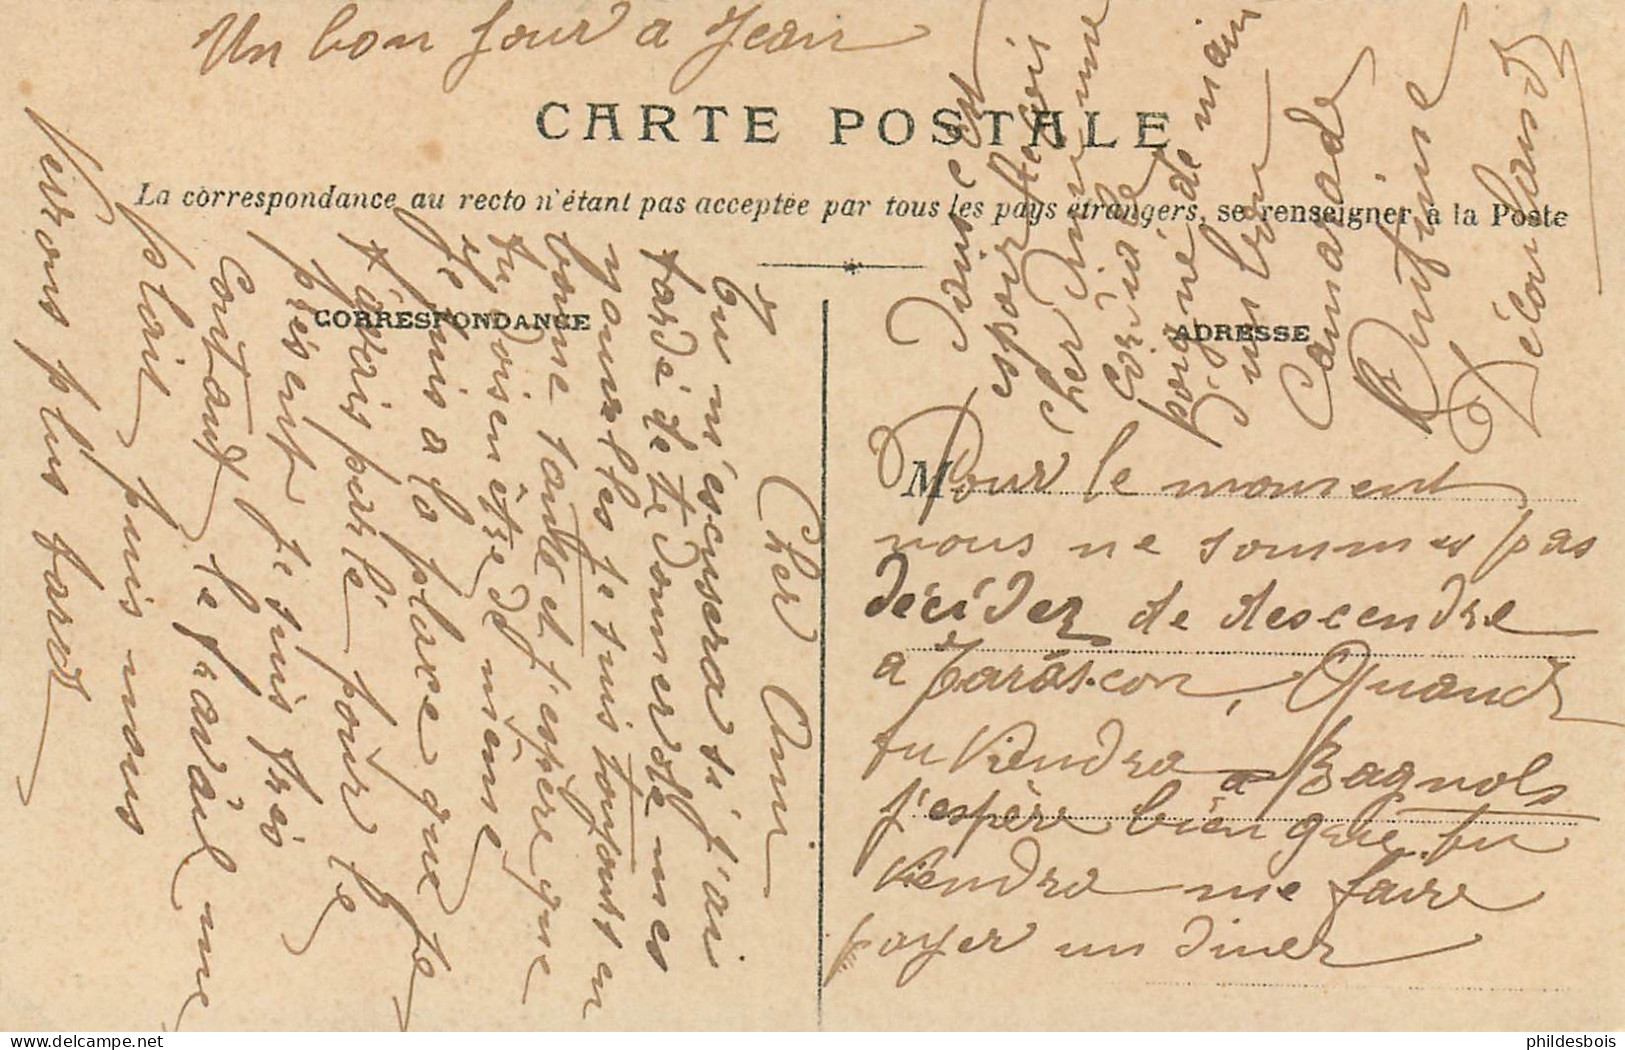 Un bon jour a Jean
CARTE POSTALE
La correspondance au recto n'étant pas acceptée par tous les pays étrangers, se renseigner à la Poste
CORRESPONDANCE
ADRESSE
Cher Ami
Tu m'escusera si j'ai
tardé de te donner de mes
nouvelles je suis toujours en
bonne santé et j'espère que
tu dois en être de même
je suis a la place que je
t'avais parlé pour le
présent je suis très
contant le travail me
plait puis nous
Verrons plus tard
M
Pour le moment
nous ne sommes pas
décidez de descendre
a Tarascon, Quand
tu Viendra a Bagnols
j'espère bien que tu
Viendra me faire
payer un diner
espoir
cher
cordiale
poigné de main
un bon
Camarade
phildesbois